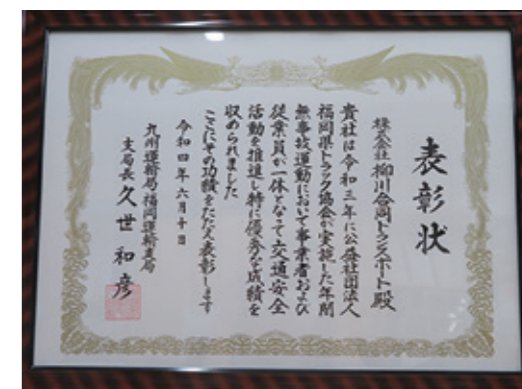 表彰状
株式会社 柳川合同トランスポート殿
貴社は令和三年に公益社団法人
福岡県トラック協会が実施した年間
無事故運動において事業者および
従業員が一体となって交通安全
活動を推進し特に優秀な成績を
収められました
ここにその功績をたたえ表彰します
令和四年六月十日
九州運輸局福岡運輸支局
支局長 久世和彦